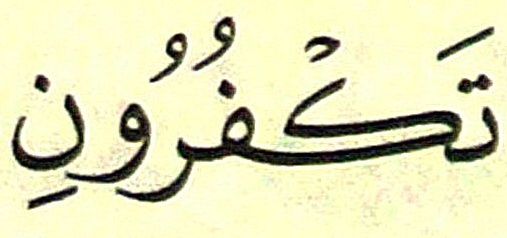 تَكْفُرُونِ